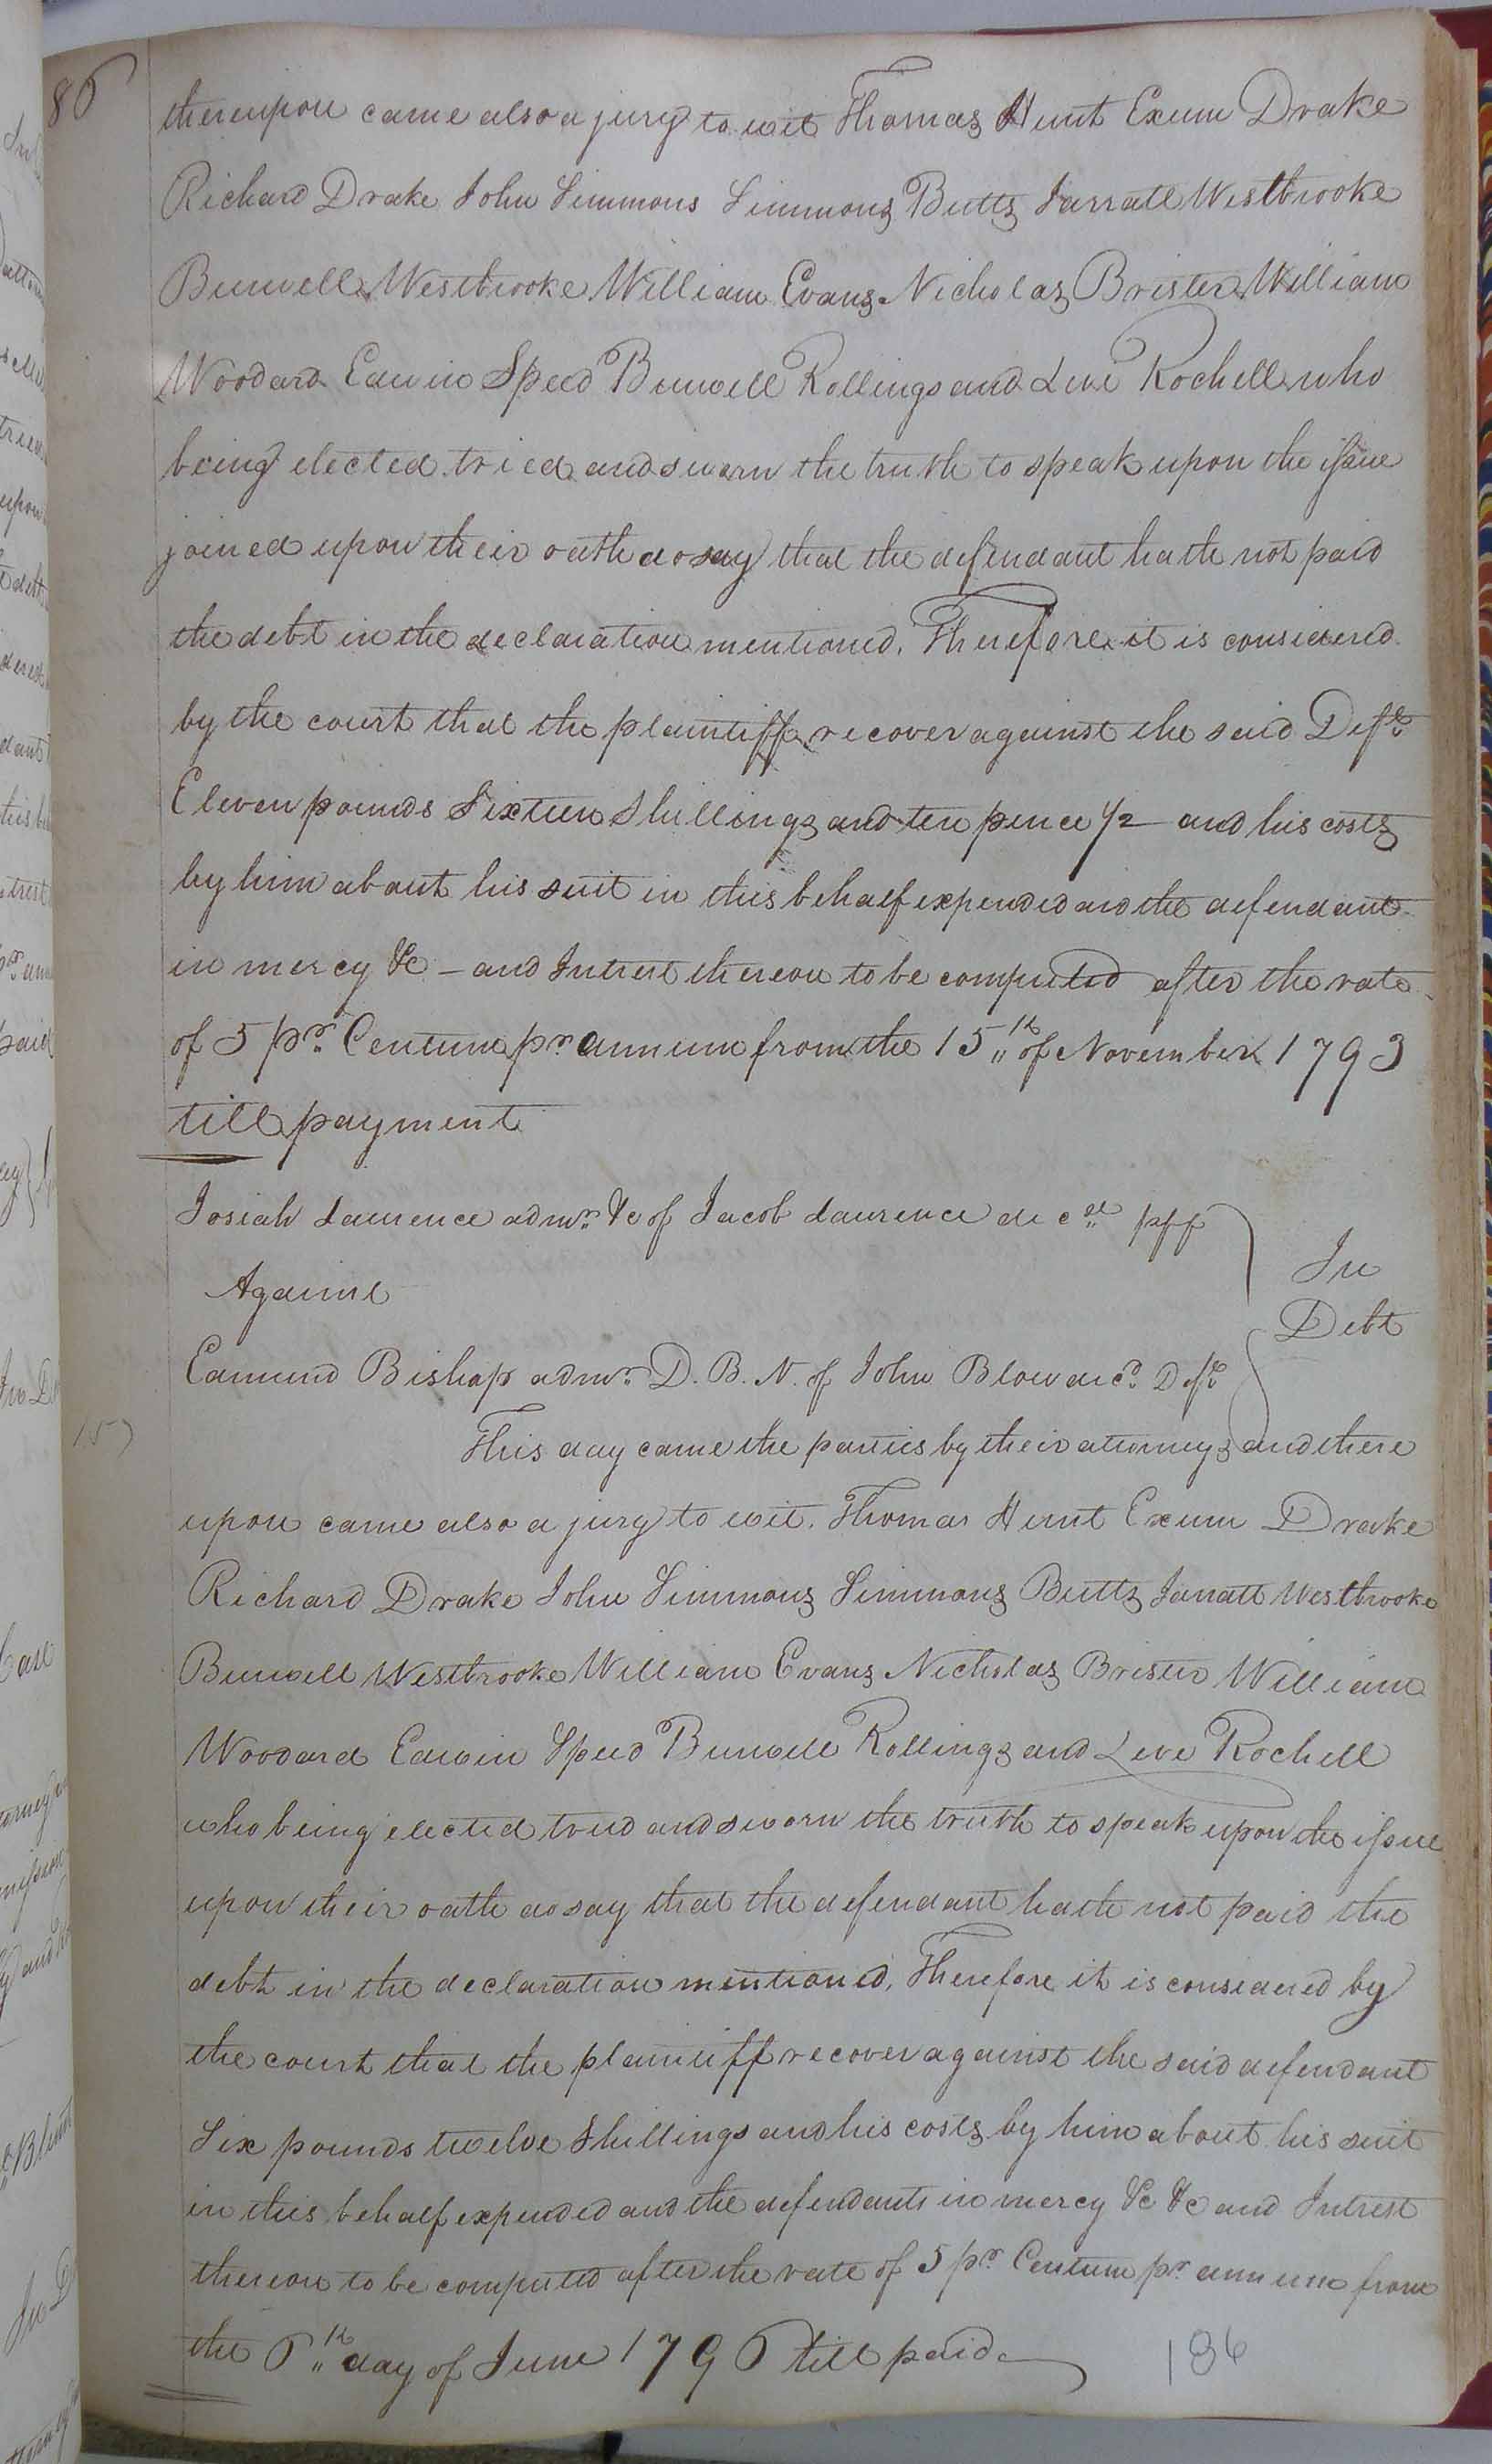 86
thereupon came also a jury to wit Thomas Hunt Exum Drake
Richard Drake John Simmons Simmons Butts Jarratt Westbrooke
Burwell Westbrooke William Evans Nicholas Brister William
Woodard Edwin Speed Burwell Rollings and Levi Rochell who
being elected tried and sworn the truth to speak upon the issue
joined upon their oath do say that the defendant hath not paid
the debt in the declaration mentioned. Therefore it is considered
by the court that the plaintiff recover against the said Deft
Eleven pounds Sixteen Shillings and ten pence 1/2 and his costs
by him about his suit in this behalf expended and the defendant
in mercy &c – and Intrest thereon to be computed after the rate
of 5 pr. Centum pr annum from the 15th of November 1793
till payment
Josiah Laurence admr. &c of Jacob Laurence decd plff
In
Against
Debt
Edmund Bishop admr. D. B. N. of John Blow decd. Deft
This day came the parties by their attorneys and there
157
upon came also a jury to wit. Thomas Hunt Exum Drake
Richard Drake John Simmons Simmons Butts Jarratt Westbrooke
Burwell Westbrooke William Evans Nicholas Brister William
Woodard Edwin Speed Burwell Rollings and Levi Rochell
who being elected tried and sworn the truth to speak upon the issue
upon their oath do say that the defendant hath not paid the
debt in the declaration mentioned, Therefore it is considered by
the court that the plaintiff recover against the said defendant
Six pounds twelve Shillings and his costs by him about his suit
in this behalf expended and the defendants in mercy &c &c and Intrest
thereon to be computed after the rate of 5 pr. Centum pr annum from
the 6th day of June 1796 till paid
186